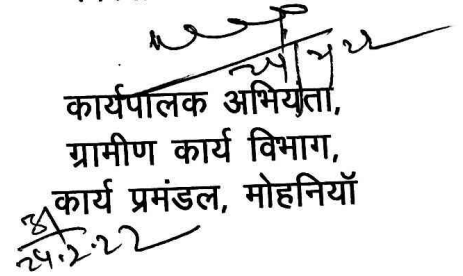 कार्यपालक अभियंता,
ग्रामीण कार्य विभाग,
कार्य प्रमंडल, मोहनियॉ
24.2.22